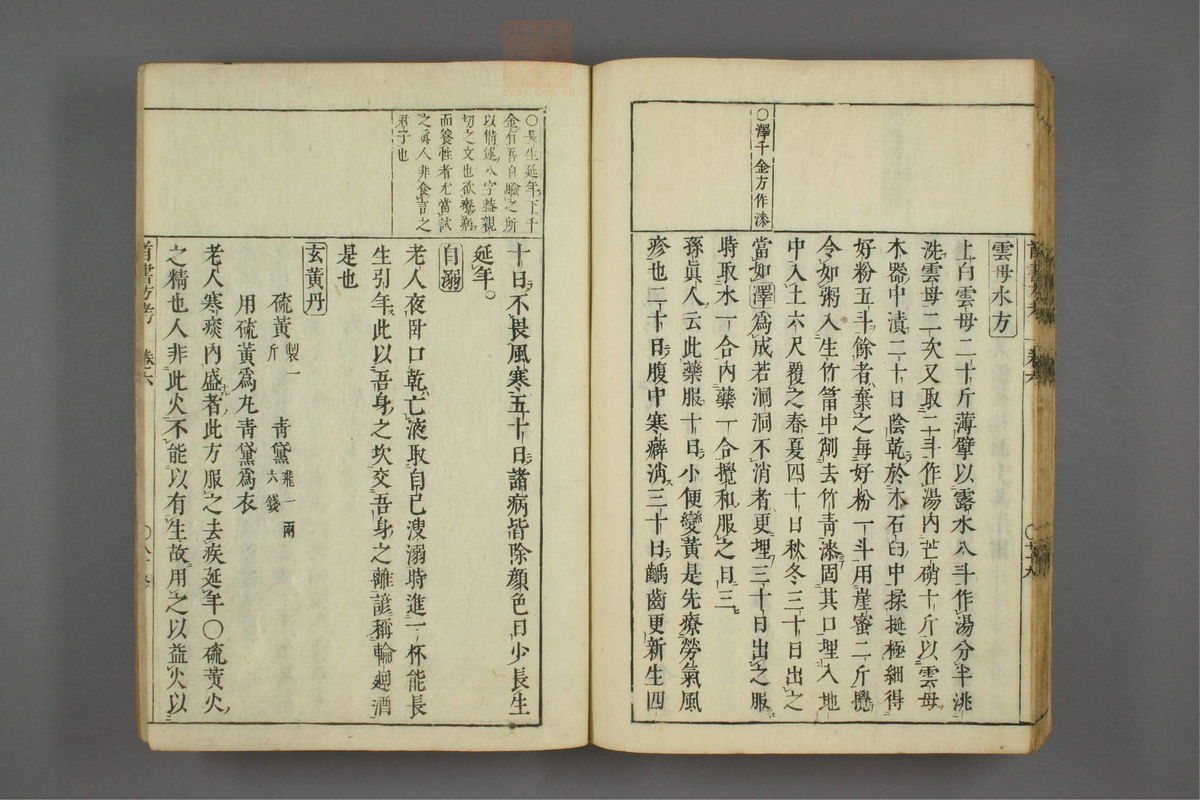 雲母水方
上白雲母二十斤薄擘以露水八斗作湯分半洮
洗雲母二次又取二斗作湯內芒硝十斤以雲母
木器中漬二十日陰乾於木石臼中採挻極細得
好粉五斗餘者棄之每好粉一斗用崖蜜二斤攪
令如粥入生竹筩中削去竹青漆固其口埋入地
中入土六尺覆之春夏四十日秋冬三十日出之
當如澤爲成若洞洞不消者更埋三十日出之服
時取水一合內藥一合攪和服之日三
孫眞人云此藥服十日小便變黃是先療勞氣風
疹也二十日腹中寒癖消三十日齲齒更新生四
○澤千金方作漆
十日不畏風寒五十日諸病皆除顏色日少長生
延年。
自溺
老人夜卧口乾亡液取自己溲溺時進一杯能長
生引年此以吾身之坎交吾身之離諺稱輪廻酒
是也
玄黃丹
硫黃製一斤 青黛飛一兩六錢
用硫黃爲丸青黛爲衣
老人寒痰內盛者此方服之去疾延年○硫黃火
之精也人非此火不能以有生故用之以益火以
○長生延年下千
金有吾自驗之所
以述八字蓋親
切之文也欲療病
而養性者尤當試
之眞人非食言之
君子也